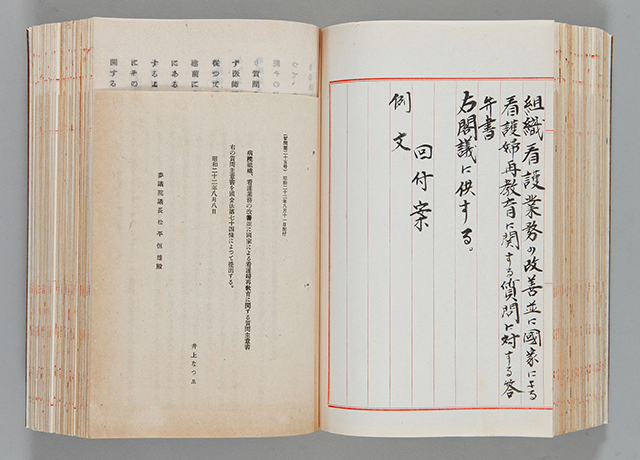 組織看護業務の改善並に國家による
看護婦再教育に関する質問に対する答
弁書
右閣議に供する。
回付案
例文
(質問第二十五号) 昭和二十二年八月十一日配付
病院組織、看護業務の改善並に國家による看護婦再教育に関する質問主意書
右の質問主意書を國会法第七十四條によつて提出する。
昭和二十二年八月八日
井上なつゑ
参議院議長 松平恒雄殿
質問
ず医師
従つて
總前に
にある
するよ
にその
関する